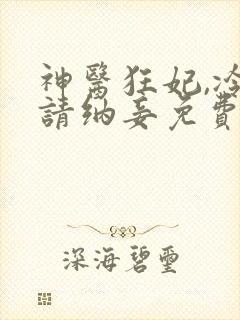 神醫狂妃,冷
請納妾免費
深海碧璽